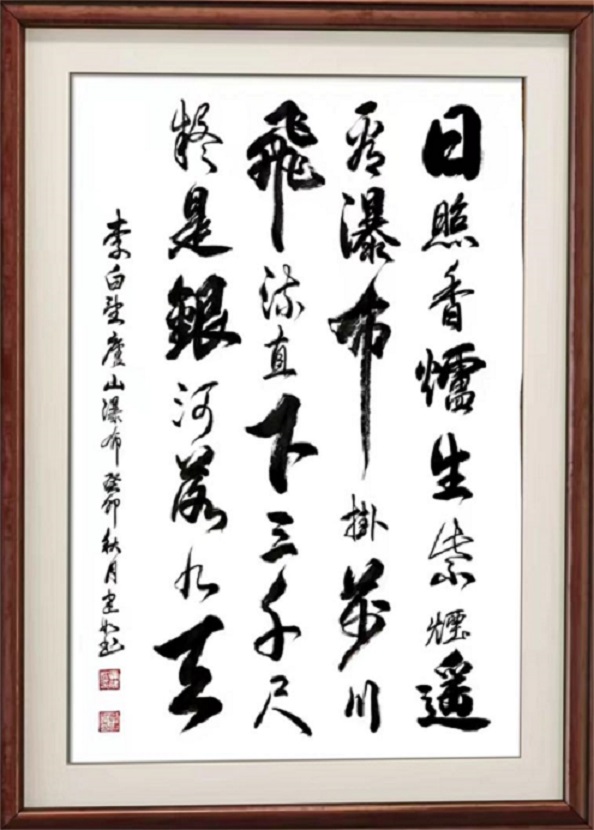 日照香爐生紫煙遙
看瀑布掛前川
飛流直下三千尺
疑是銀河落九天
李白望廬山瀑布癸卯秋月书